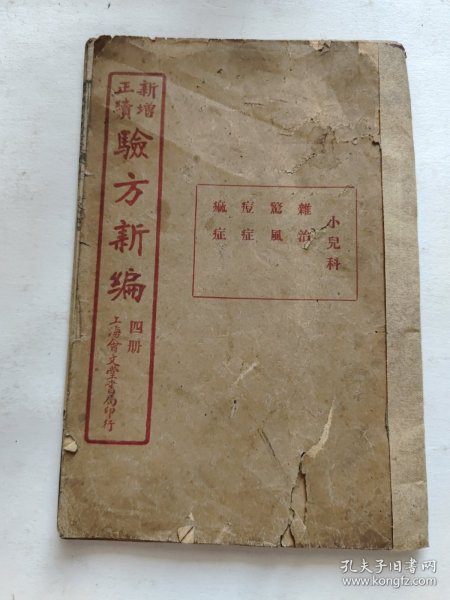 小兒科
雜治
驚風
痘症
痲症
新增
正續
驗方新編
四册
上海會文堂書局印行
孔夫子旧书网
www.kongfz.com